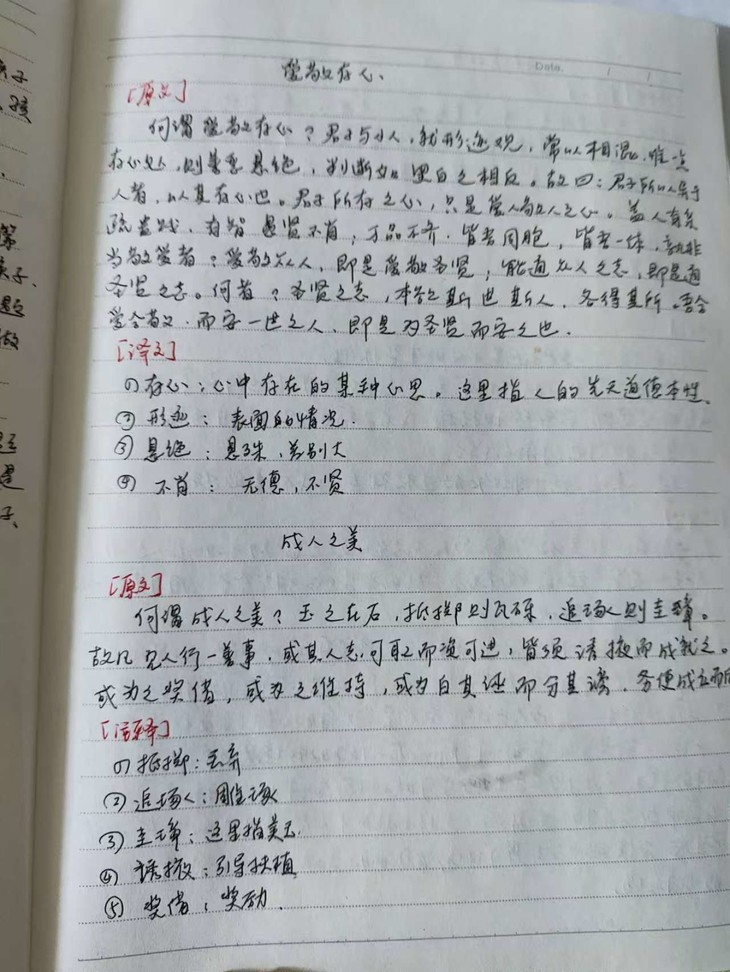 爱敬存心、
Date.
[原文]
何谓爱敬存心？君子与小人，就形迹观，常以相混，唯一点
存心处，则善恶悬绝，判断如黑白之相反。故曰：君子所以异于
人者，以其存心也。君子所存之心，只是爱人敬人之心。盖人有亲
疏贵贱，有智愚贤不肖，万品不齐，皆吾同胞，皆吾一体，孰非
当敬爱者？爱敬众人，即是爱敬圣贤，能通众人之志，即是通
圣贤之志。何者？圣贤之志，本欲斯世斯人，各得其所。吾合
爱合敬，而安一世之人，即是为圣贤而安之也。
[译文]
① 存心：心中存在的某种心思。这里指人的先天道德本性。
② 形迹：表面的情况.
③ 悬绝：悬殊，差别大
④ 不肖：无德，不贤
成人之美
[原文]
何谓成人之美？玉之在石，抵掷则瓦砾，追琢则圭璋。
故凡见人行一善事，或其人志可取而资可进，皆须诱掖而成就之。
或为之奖借，或为之维持，或为白其诬而分其谤，务使成立而后
[注释]
① 抵掷：丢弃
② 追琢：雕琢
③ 圭璋：这里指美玉.
④ 诱掖：引导扶植
⑤ 奖借：奖励.